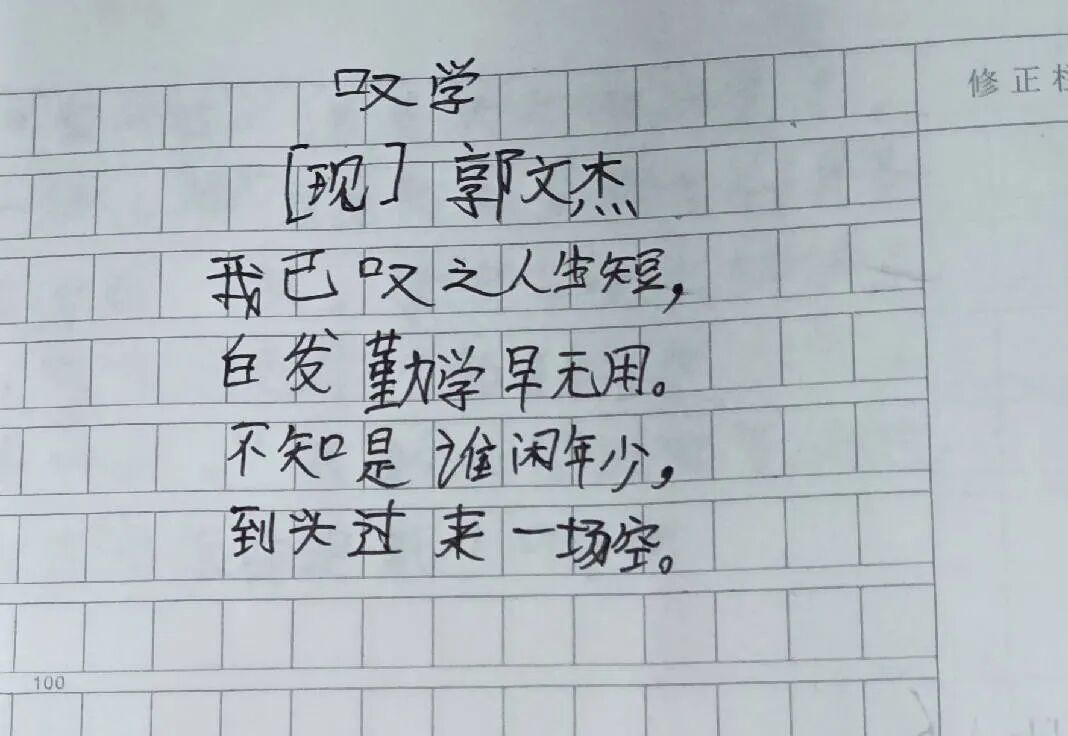 叹学
修正
[现] 郭文杰
我已叹之人生短，
白发勤学早无用。
不知是谁闲年少，
到头过来一场空。
100